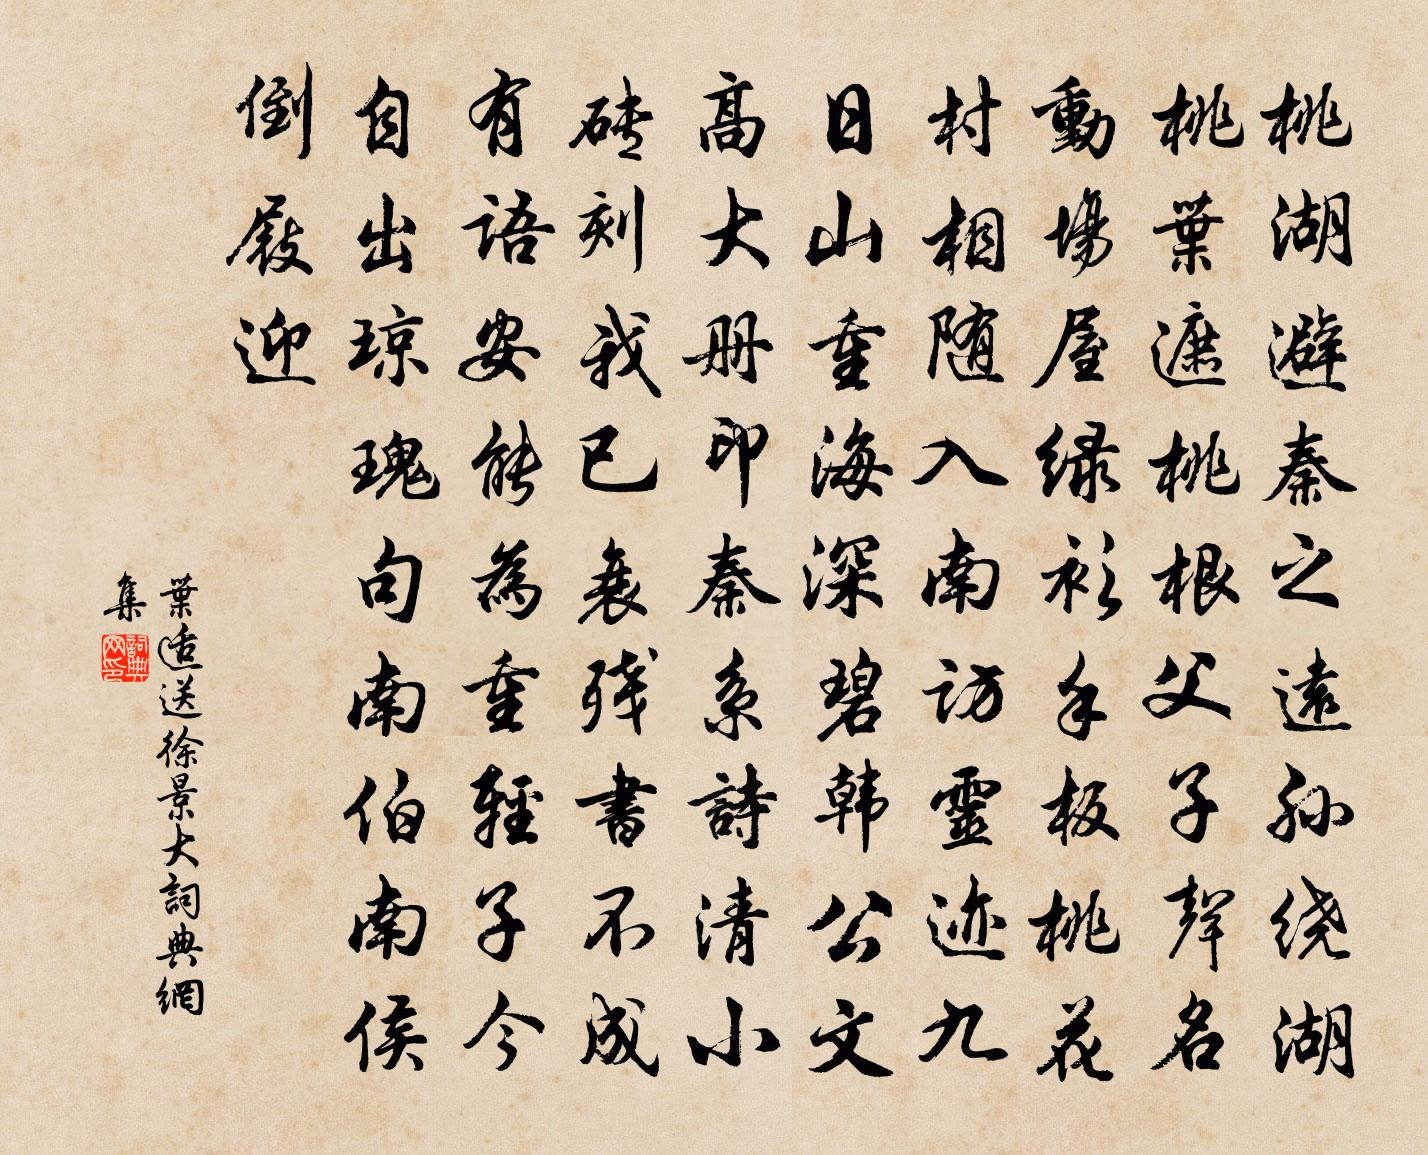 桃湖避秦之遠孙绕湖
桃葉遮桃根父子聲名
動場屋绿衫手板桃花
村相随入南訪靈迹九
日山重海深碧韩公文
高大册印秦系詩清小
磚刻我已衰残書不成
有語安能為重輕子今
自出琼瑰句南伯南侯
倒屐迎
葉适送徐景大詞典網
集
詞典网印